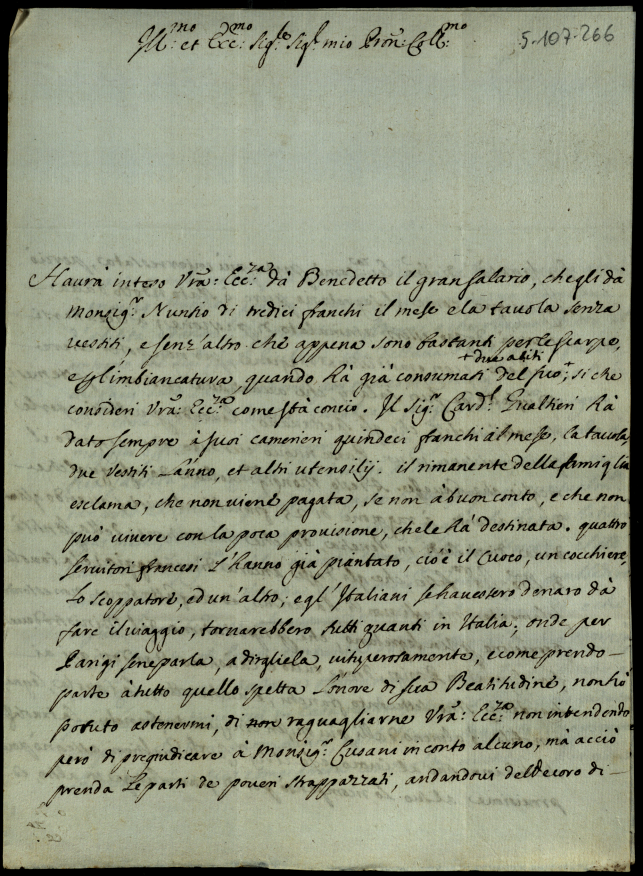 5-107-266
Ill:mo et Ecc:mo Sig:re Sig:r mio Pron: Coll:mo
Haurà inteso Vra: Ecc:za dà Benedetto il gran salario, che gli dà
Monsig:r Nuntio di tredici franchi il mese e la tavola senza
vestiti, e senz'altro che appena sono bastanti per le scarpe,
e l'imbiancatura, quando hà già consumati del suo +; si che
+ due abiti
consideri Vra: Ecc:za come stà concio. Il Sig:r Card:l Gualtieri hà
dato sempre à suoi camerieri quindeci franchi al mese, la tavola,
due vestiti L'anno, et altri utensilij. il rimanente della famiglia
esclama, che non viene pagata, se non à buon conto, e che non
può vivere con la poca provisione, che le hà destinata. quattro
servitori francesi L'hanno già piantato, cio'è il Cuoco, un cocchiere,
Lo scoppatore, ed un'altro; e gl'Italiani se havessero denaro dà
fare il viaggio, tornarebbero tutti quanti in Italia; onde per
Parigi se ne parla, a dirgliela, vituperosamente, e come prendo-
parte à tutto quello spetta L'onore di sua Beatitudine, non hò
potuto astenermi, di non raguagliarne Vra: Ecc:za non intendendo
però di pregiudicare à Monsig:r Cusani in conto alcuno, mà acciò
prenda Le parti de poveri strappazzati, andandovi del decoro di-